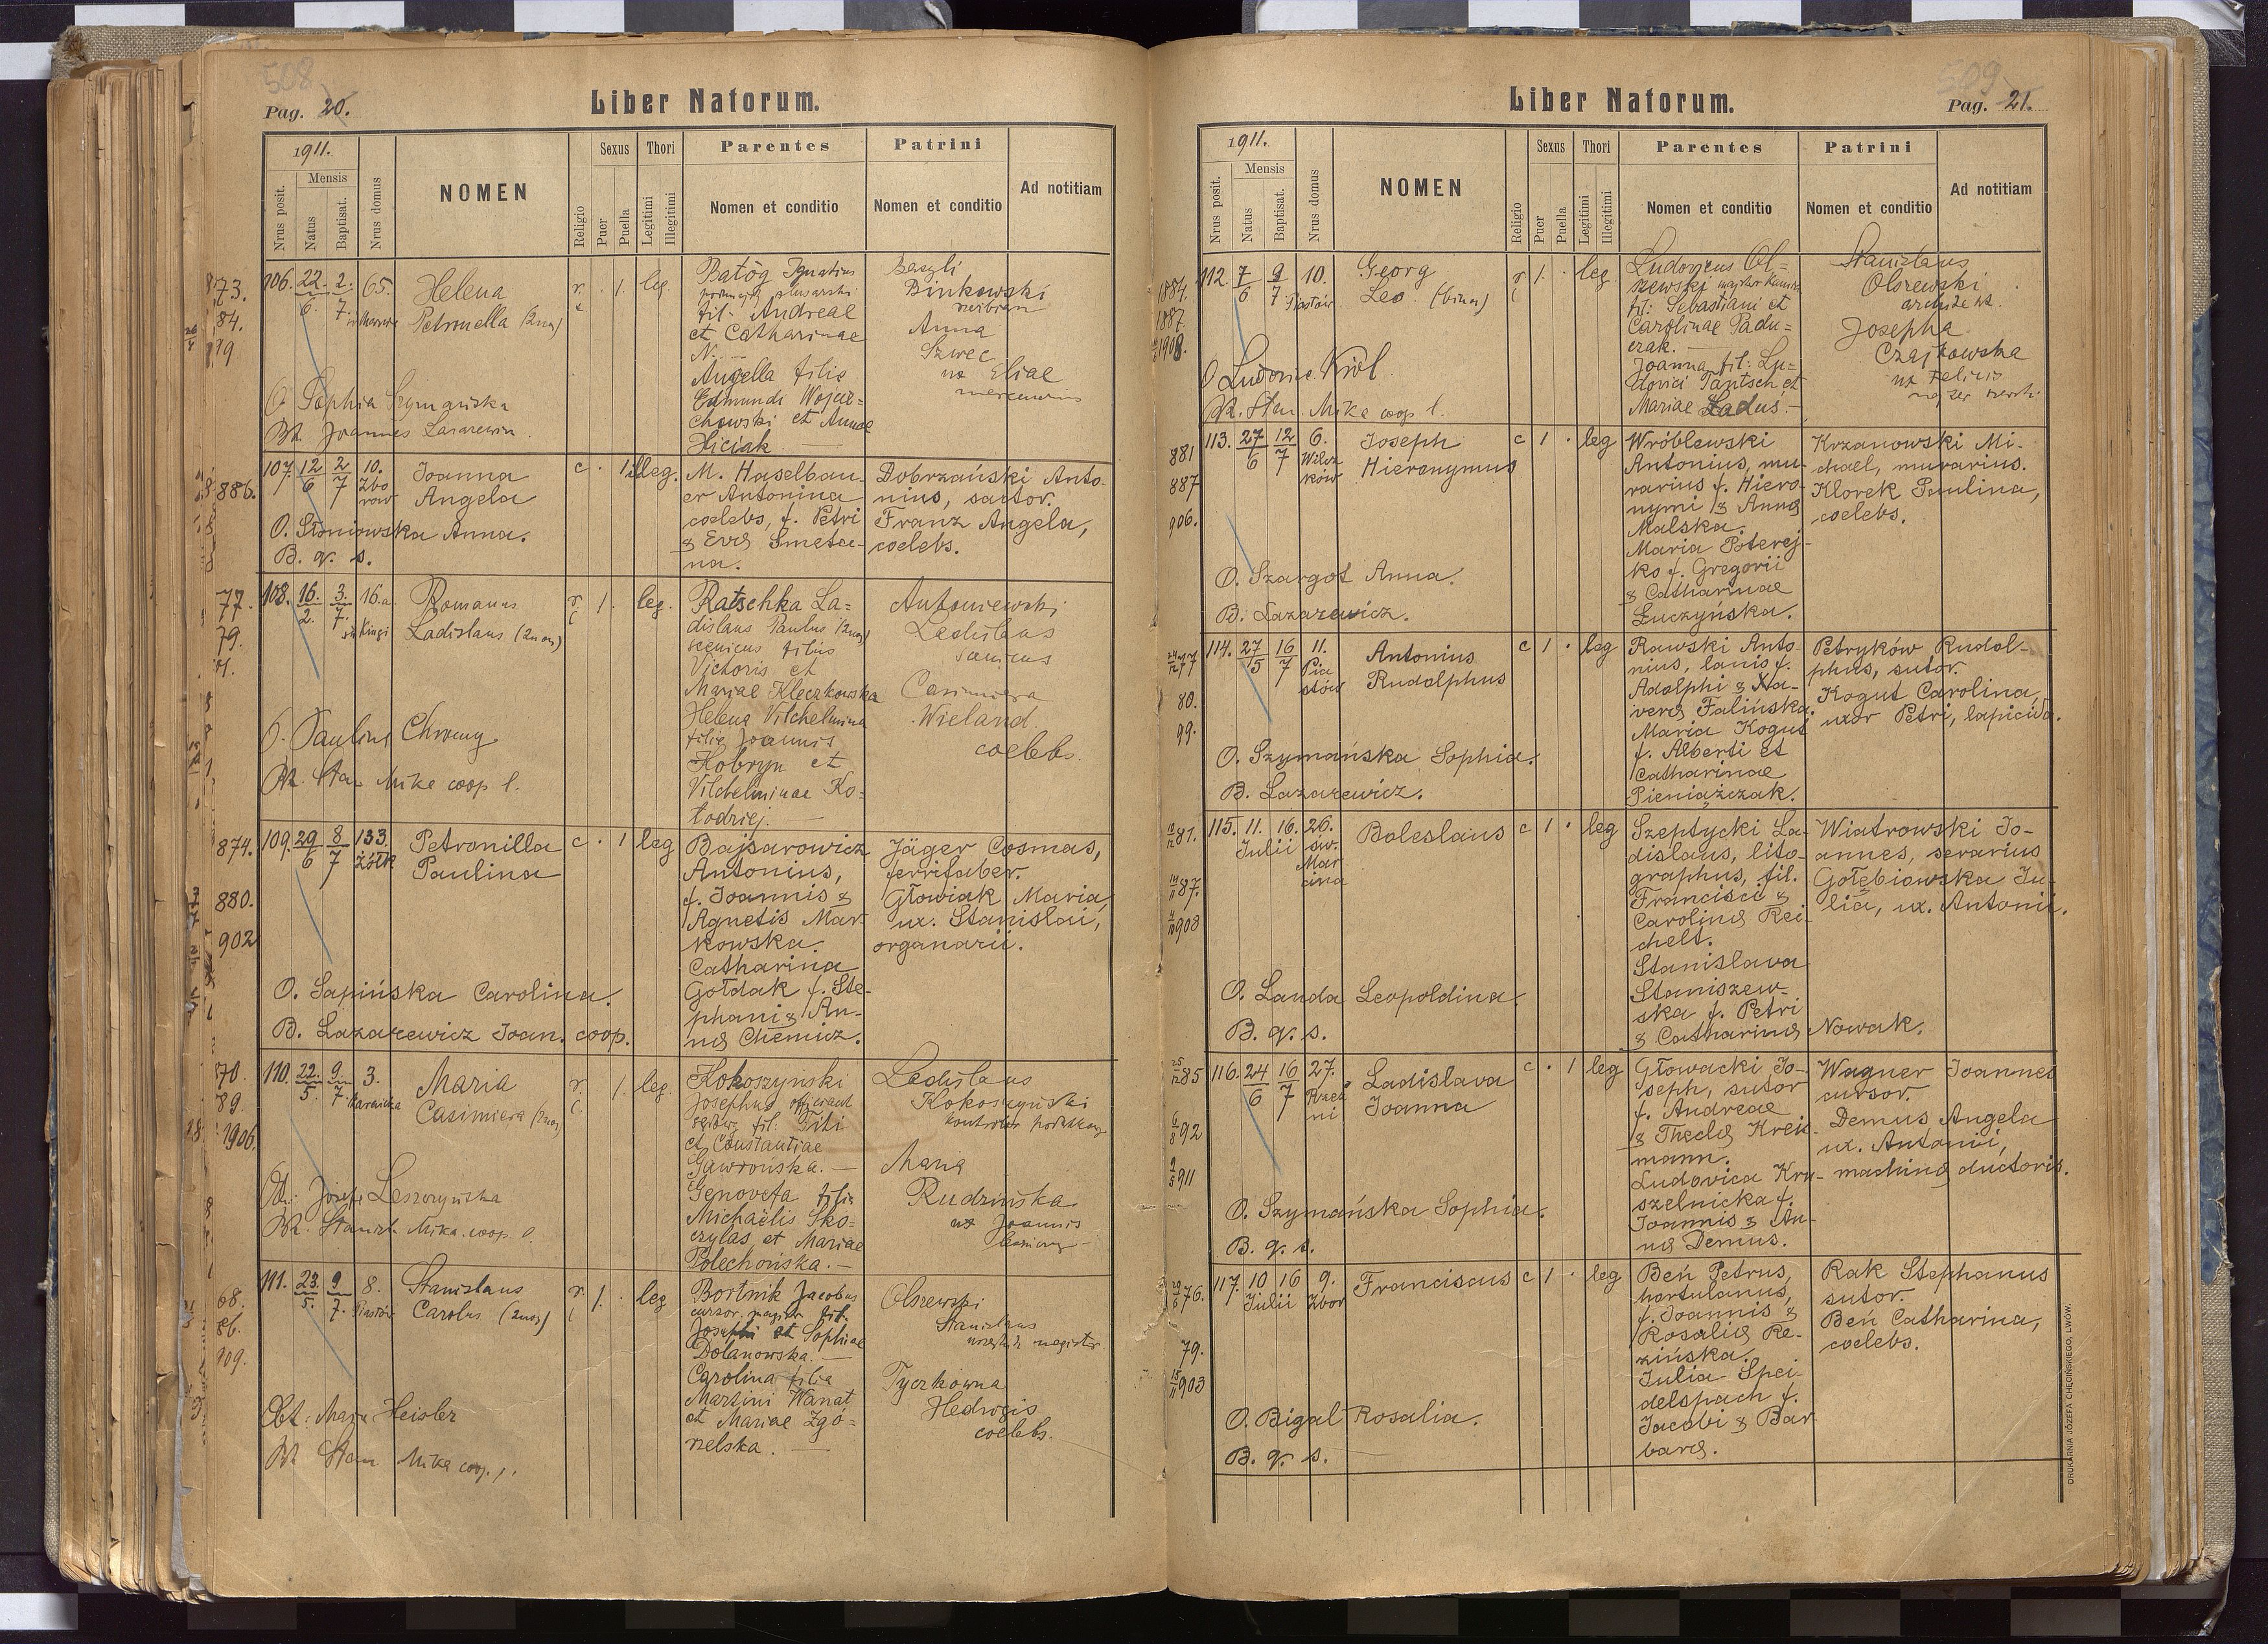 508
Pag. 20.
Liber Natorum.
1911.
Mensis
Nrus posit.
Natus
Baptisat.
Nrus domus
NOMEN
Religio
Sexus
Puer
Puella
Thori
Legitimi
Illegitimi
Parentes
Nomen et conditio
Patrini
Nomen et conditio
Ad notitiam
873.
84.
106. 22/6. 2./7. 65.
Helena
Petronella (2nom)
r. c 1. leg.
Batóg Ignatius
fil. Andreae
et Catharinae
N. —
Angella filia
Edmundi Wojcie=
chowski et Annae
Hiciak —
Bazyli
Binkowski
Anna
Szwec
ux Eliae
O Sophia Szymańska
Bt. Joannes Lazarewicz.
886.
107. 12/6 2/7 10.
Zbo
row
Joanna
Angela
c . 1 illeg.
M. Haselbau-
er Antonina
coelebs, f. Petri
& Evæ Smeta-
na.
Dobrzański Anto-
nius, sartor.
Franz Angela,
coelebs.
O. Słoniowska Anna.
B. q. s.
77.
79.
108. 16./2. 3./7. 16.a
św Kingi
Romanus
Ladislaus (2nom)
r c 1. leg.
Ratschka La=
dislaus Paulus (2nom)
scenicus filius
Victoris et
Mariae Kleczkowska
Helena Vilchelmina
filia Joannis
Kobryn et
Vilchelminae Ko=
łodziej. —
Antoniewski
Ladislaus
scenicus
Casimiera
Wieland.
coelebs.
O. Paulina Chromy.
Bt. Stan Mika coop l.
874.
880.
902
109. 29/6 8/7 133.
Żółk
Petronilla
Paulina
c . 1 leg
Bajsarowicz
Antonius,
f. Joannis &
Agnetis Mar-
kowska.
Catharina
Gołdak f. Ste-
phani & An-
næ Chemicz.
Jäger Cosmas,
ferrifaber.
Głowiak Maria,
ux. Stanislai,
organarii.
O. Sapińska Carolina.
B. Lazarewicz Joan. coop.
70.
89.
1906.
110. 22./5. 9./7. 3.
Maria
Casimiera (2nom)
r. c. 1. leg.
Kokoszynski
Josephus
fil: Titi
et Constantiae
Gawrońska. —
Genovefa filia
Michaëlis Sko=
czylas et Mariae
Polechońska. —
Ladislaus
Kokoszyński
Maria
Rudzińska
ux Joannis
Ob: Josefa Leszczyńska
Bt. Stanisl. Mika. coop. l.
68.
86.
909.
111. 23./5. 9/7. 8.
Piastów
Stanislaus
Carolus (2nom)
r. c 1. . leg
Bortnik Jacobus
cursor magistr fil.
Josephi et Sophiae
Dolanowska. —
Carolina filia
Martini Wanat
et Mariae Zgó=
rzelska. —
Olszewski
Stanislaus
Tyczkowna
Hedvigis
coelebs.
Obt: Maria Heisler
Bt Stan Mika coop. l.
509
Pag. 21.
Liber Natorum.
1911.
Mensis
Nrus posit.
Natus
Baptisat.
Nrus domus
NOMEN
Religio
Sexus
Puer
Puella
Thori
Legitimi
Illegitimi
Parentes
Nomen et conditio
Patrini
Nomen et conditio
Ad notitiam
1884.
1887.
1908.
112. 7/6 9/7 10.
Piastów
Georg
Leo. (bino)
r c 1. . leg.
Ludovicus Ol=
szewski
fil: Sebastiani et
Carolinae Padu=
czak. —
Joanna fil: Lu=
dovici Täntsch et
Mariae Ładuś. —
Stanislaus
Olszewski
Josepha
Czajkowska
ux Felicis
O Ludovic. Król
Bt. Stan. Mika coop l.
881
887
906.
113. 27/6 12/7 6.
Wilcz
ków
Joseph
Hieronymus
c 1 . leg
Wróblewski
Antonius, mu-
rarius f. Hiero-
nymi & Annæ
Malska.
Maria Poterej-
ko f. Gregorii
& Catharinae
Łuczyńska.
Krzanowski Mi-
chael, murarius.
Klorek Paulina,
coelebs.
O. Szargot Anna.
B. Lazarewicz.
77
80.
99.
114. 27/5 16/7 11.
Pia
stów
Antonius
Rudolphus
c 1 . leg
Rawski Anto-
nius, lanis f.
Adolphi & Xa-
veræ Falinska.
Maria Kogut
f. Alberti et
Catharinae
Pieniążczak.
Petryków Rudol-
phus, sutor.
Kogut Carolina,
uxor Petri, lapicida.
O. Szymańska Sophia.
B. Lazarewicz.
81.
87.
908
115. 11. 16. 26.
Julii św.
Mar
cina
Boleslaus
c 1 . leg
Szeptycki La-
dislaus, lito-
graphus, fil.
Francisci &
Carolinæ Rei-
chelt.
Stanislava
Staniszew-
ska f. Petri
& Catharinæ Nowak.
Wiatrowski Jo-
annes, serarius
Gołębiowska Ju-
lia, ux. Antonii.
O. Landa Leopoldina.
B. q. s.
85
92
911
116. 24/6 16/7 27.
Rzeź
ni
Ladislava
Joanna
c . 1 leg
Głowacki Jo-
seph, sutor
f. Andreae
& Theclæ Krei-
mann.
Ludovica Kru-
szelnicka f.
Joannis & An-
næ Demus.
Wagner Joannes
cursor.
Demus Angela
ux. Antonii,
machinæ ductoris.
O. Szymańska Sophia.
B. q. s.
76.
79.
903
117. 10 16 9.
Julii Zbor
Franciscus
c 1 . leg
Beń Petrus,
hortulanus,
f. Joannis &
Rosaliæ Re-
zińska.
Julia Spei-
delspach f.
Jacobi & Bar-
baræ.
Rak Stephanus
sutor.
Beń Catharina,
coelebs.
O. Bigal Rosalia.
B. q. s.
DRUKARNIA JÓZEFA CHĘCIŃSKIEGO, LWÓW.